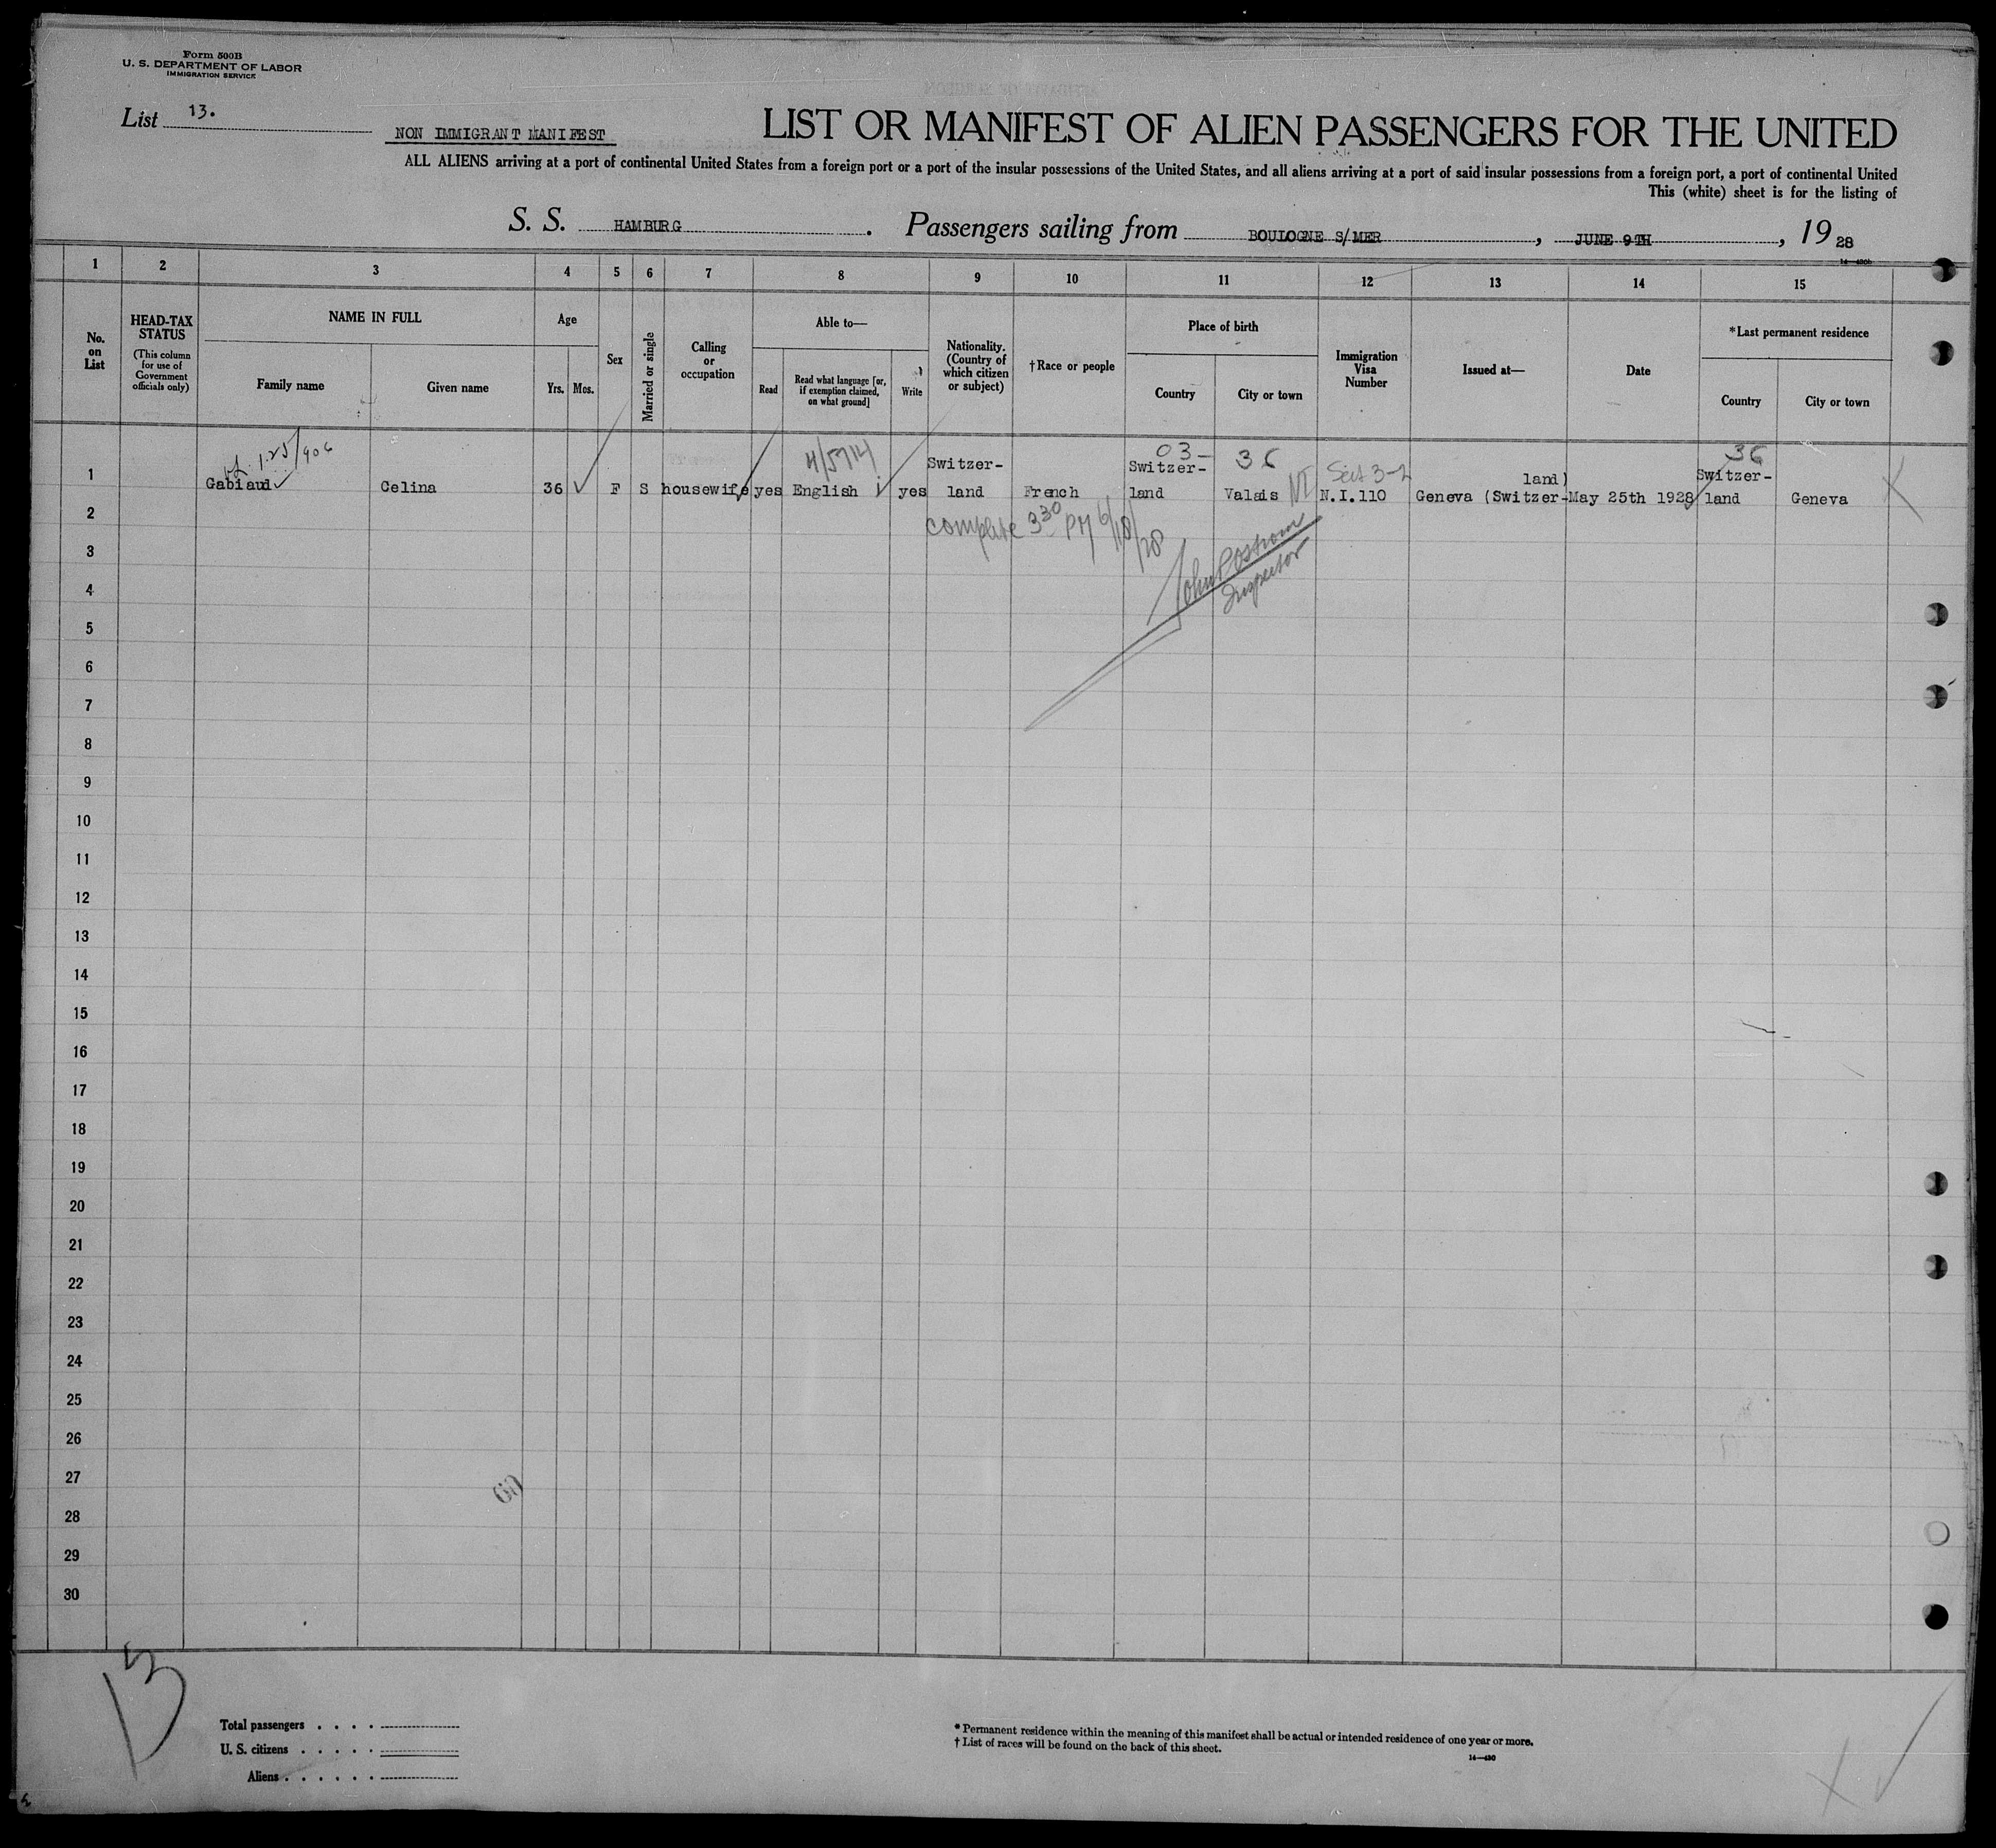 Form 500B
U. S. DEPARTMENT OF LABOR
IMMIGRATION SERVICE
List 13.
NON IMMIGRANT MANIFEST
LIST OR MANIFEST OF ALIEN PASSENGERS FOR THE UNITED
ALL ALIENS arriving at a port of continental United States from a foreign port or a port of the insular possessions of the United States, and all aliens arriving at a port of said insular possessions from a foreign port, a port of continental United
This (white) sheet is for the listing of
S. S. HAMBURG. Passengers sailing from BOULOGNE S/MER, JUNE 9TH, 19 28
1 2 3 4 5 6 7 8 9 10 11 12 13 14 15
No. on List
HEAD-TAX STATUS
(This column for use of Government officials only)
NAME IN FULL
Family name
Given name
Age
Yrs.
Mos.
Sex
Married or single
Calling or occupation
Able to—
Read
Read what language [or, if exemption claimed, on what ground]
Write
Nationality. (Country of which citizen or subject)
†Race or people
Place of birth
Country
City or town
Immigration Visa Number
Issued at—
Date
*Last permanent residence
Country
City or town
03- 36 36
1 Gabiaud Celina 36 F S housewife yes English yes Switzer-land French Switzer-land Valais N.I.110 Geneva (Switzer-land) May 25th 1928 Switzer-land Geneva
complete 3 30 PM 6/18/28
2
3
Inspector
4
5
6
7
8
9
10
11
12
13
14
15
16
17
18
19
20
21
22
23
24
25
26
27
60
28
29
30
13
Total passengers . . . .
U. S. citizens . . . . .
Aliens . . . . . .
* Permanent residence within the meaning of this manifest shall be actual or intended residence of one year or more.
† List of races will be found on the back of this sheet.
14—430